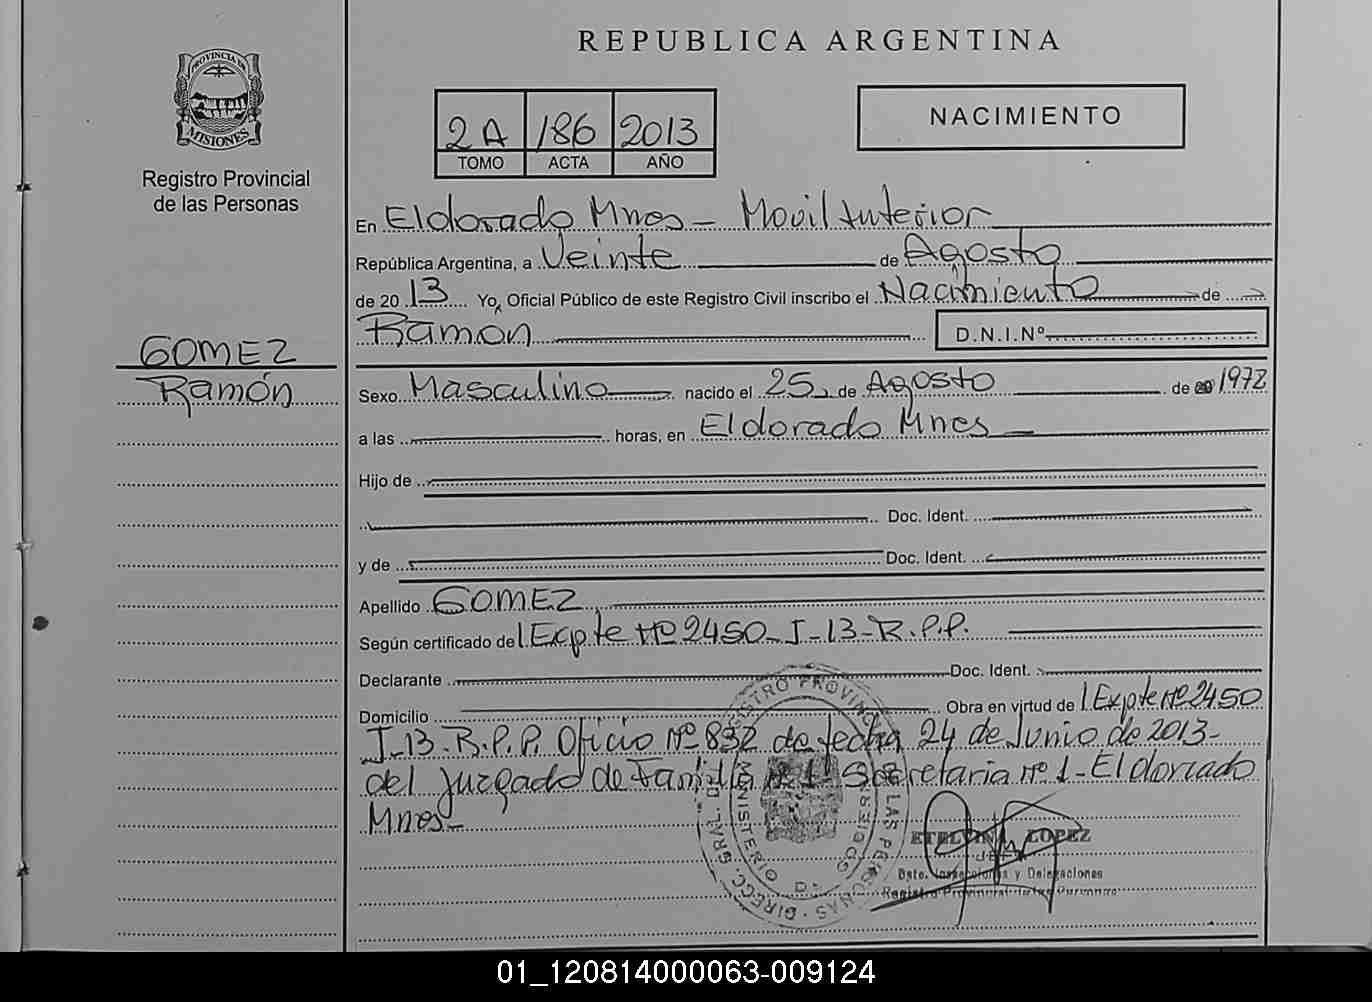 REPUBLICA ARGENTINA
PROVINCIA DE
MISIONES
Registro Provincial
de las Personas
2A 186 2013
TOMO ACTA AÑO
NACIMIENTO
En Eldorado Mnes - Movil Interior
República Argentina, a Veinte de Agosto
de 20 13 Yo, Oficial Público de este Registro Civil inscribo el Nacimiento de
Ramon D.N.I.Nº
GOMEZ
Ramón
Sexo Masculino nacido el 25 de Agosto de 1972
a las horas, en Eldorado Mnes
Hijo de
Doc. Ident.
y de Doc. Ident.
Apellido GOMEZ
Según certificado del Expte Nº 2450-J-13-R.P.P.
Declarante Doc. Ident.
Domicilio Obra en virtud de l Expte Nº 2450
J-13-R.P.P. Oficio Nº 832 de fecha 24 de Junio de 2013-
del Juzgado de Familia Nº 1 Secretaria Nº 1 - Eldorado
Mnes-
ETELVINA LOPEZ
JEFA
Dpto. Inspecciones y Delegaciones
Registro Provincial de las Personas
01_120814000063-009124